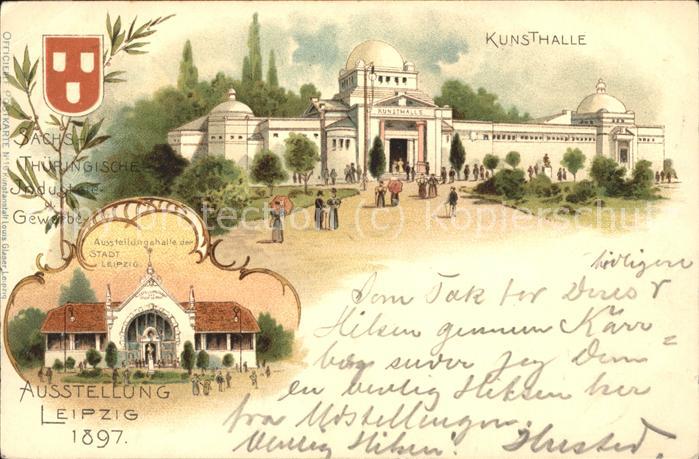 KUNSTHALLE
KUNSTHALLE
OFFICIELLE POSTKARTE No
Kunstanstalt Louis Glaser, Leipzig
SÄCHS.-
THÜRINGISCHE
Industrie-
u.
Gewerbe-
Ausstellungshalle der
STADT
LEIPZIG.
AUSSTELLUNG
LEIPZIG
1897.
Som Tak for Deres
Hilsen gennem
sender jeg Dem
en venlig Hilsen her
fra Udstillingen.
Venlig Hilsen!
copyright protection © Kopierschutz